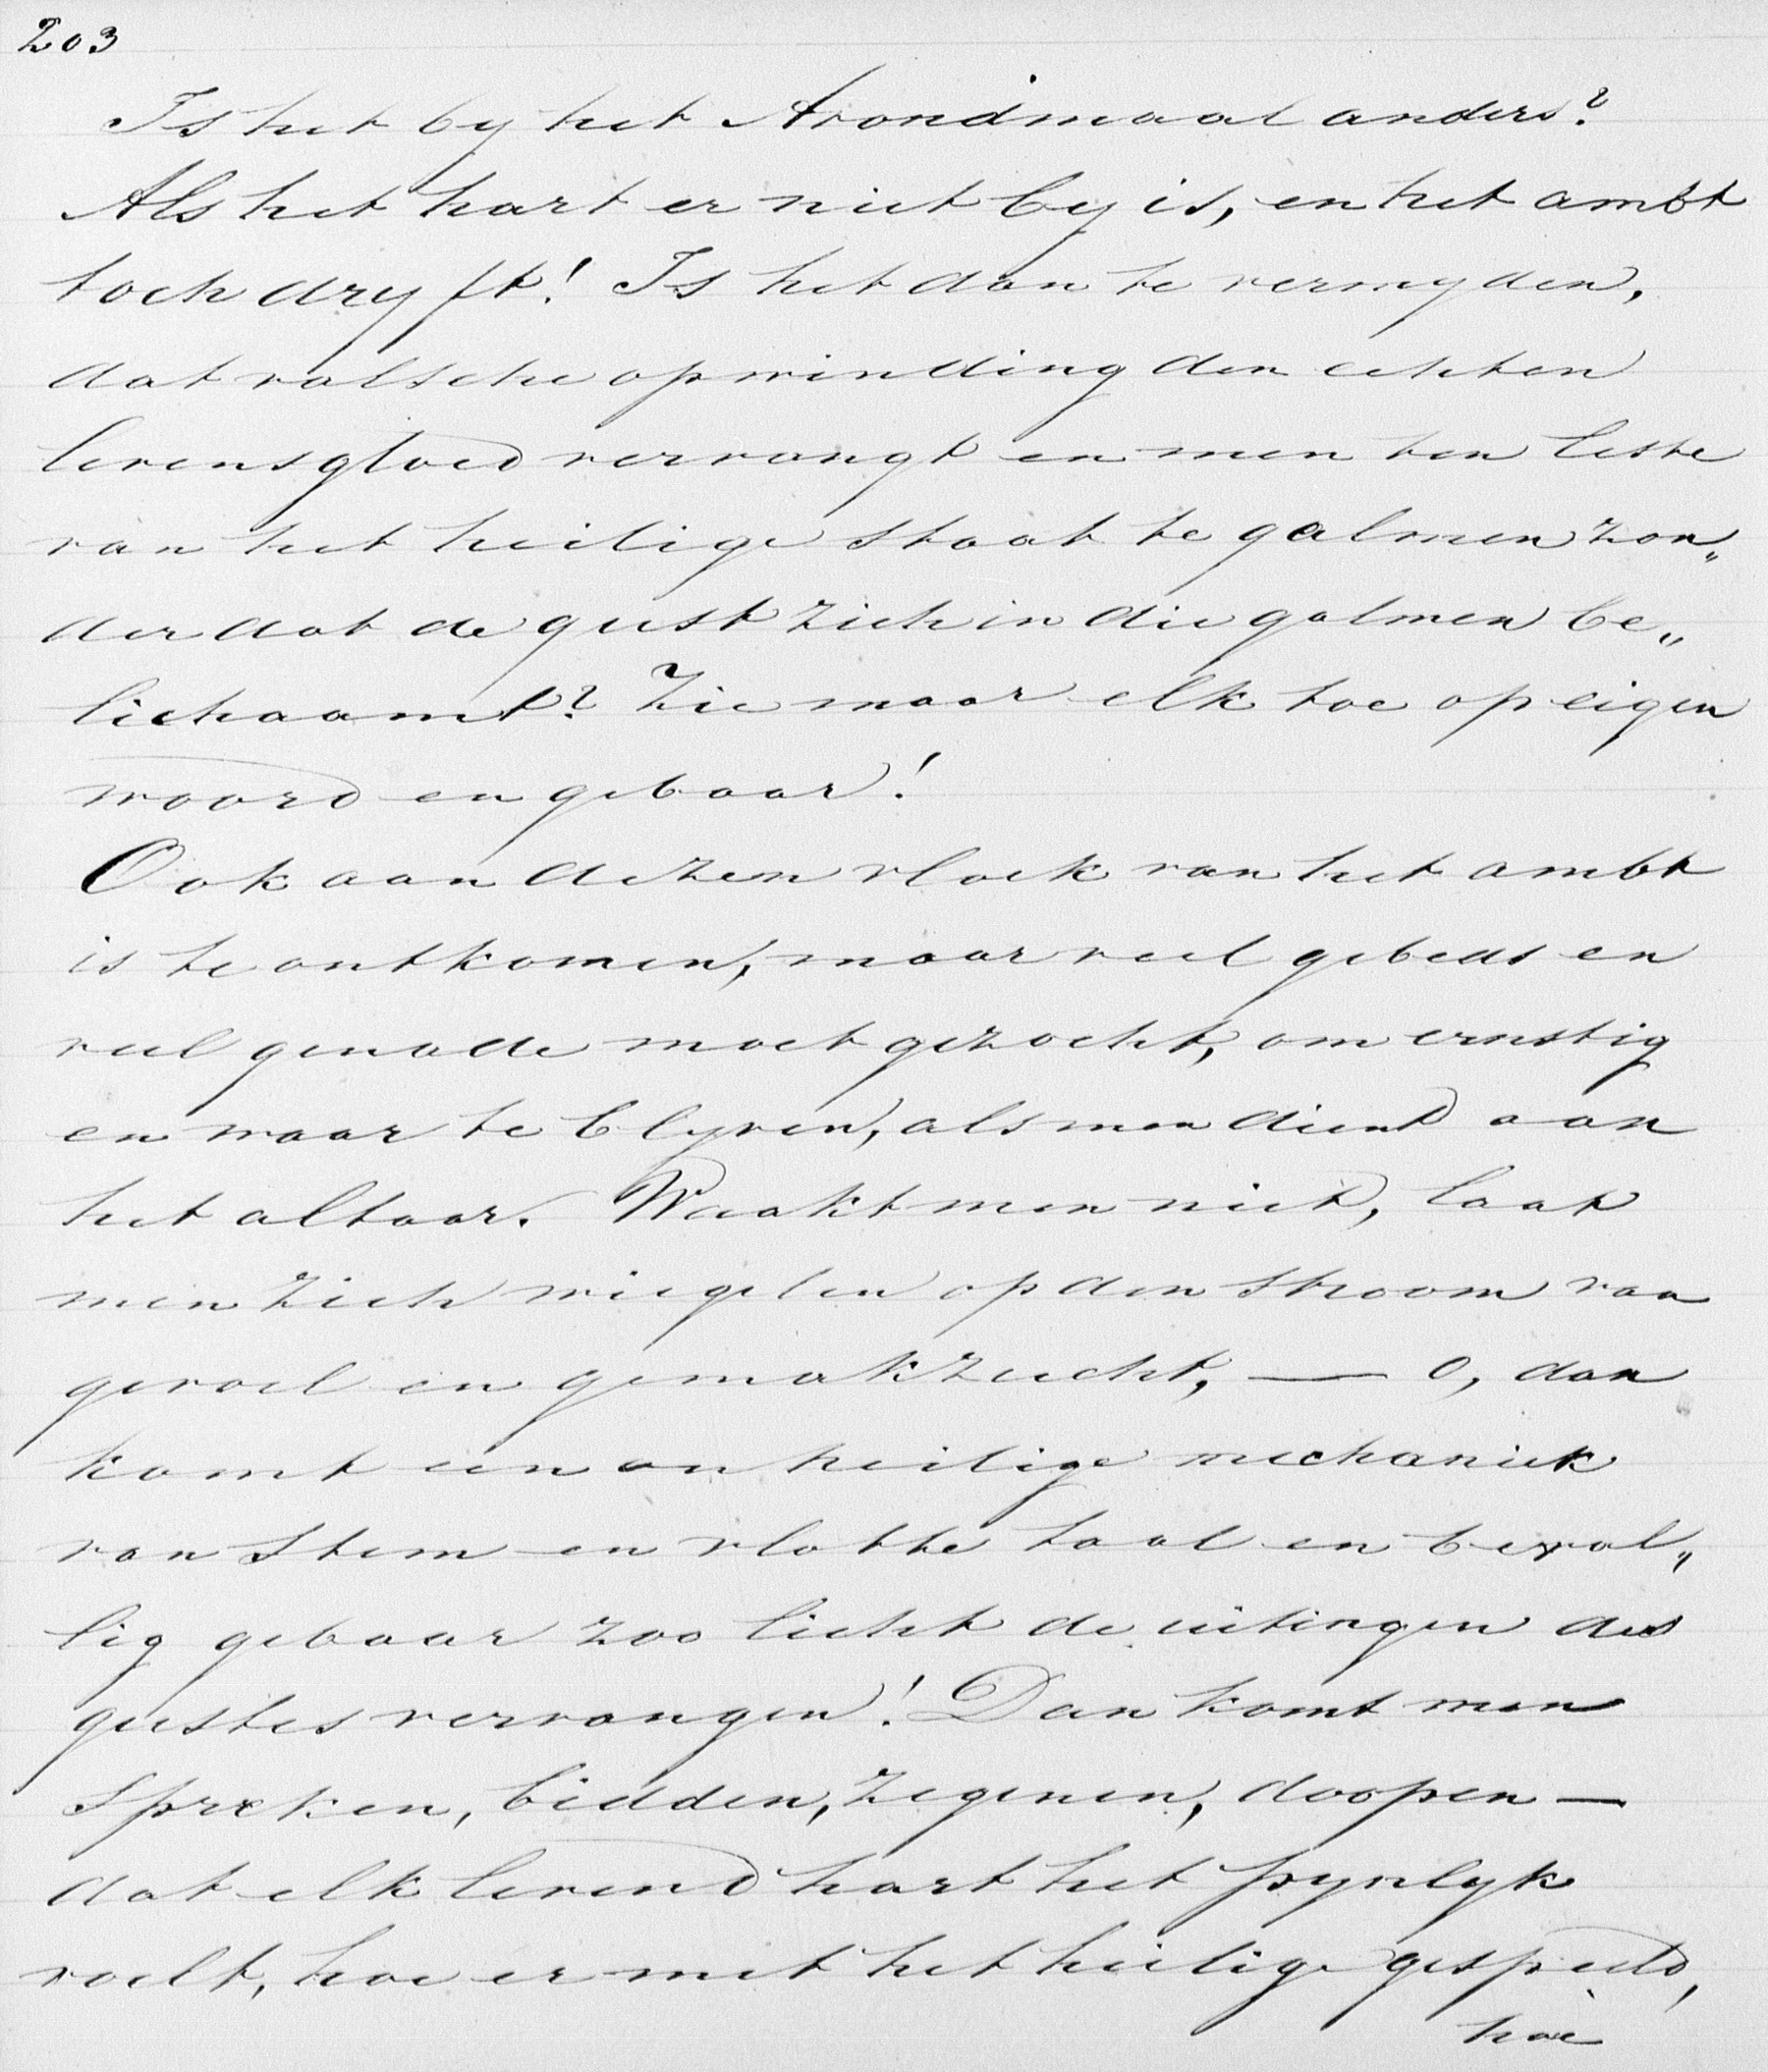 203
Is het by het Avondmaal anders?
Als het hart er niet by is, en het ambt
toch dryft! Is het dan te vermyden,
dat valsche opwinding den echten
levensgloed vervangt en men ten leste
van het heilige staat te galmen zon„
der dat de geest zich in die galmen be„
lichaamt? Zie maar elk toe op eigen
woord en gebaar!
Ook aan dezen vloek van het ambt
is te ontkomen, maar veel gebeds en
veel genade moet gezocht, om ernstig
en waar te blyven, als men dient aan
het altaar. Waakt men niet, laat
men zich wiegelen op den stroom van
gevoel en gemakzucht, — o, dan
komt een onheilige mechaniek
van stem en vlotte taal en beval„
lig gebaar zoo licht de uitingen des
geestes vervangen! Dan komt men
spreken, bidden, zegenen, doopen —
dat elk levend hart het pynlyk
voelt, hoe er met het heilige gespeeld,
hoe